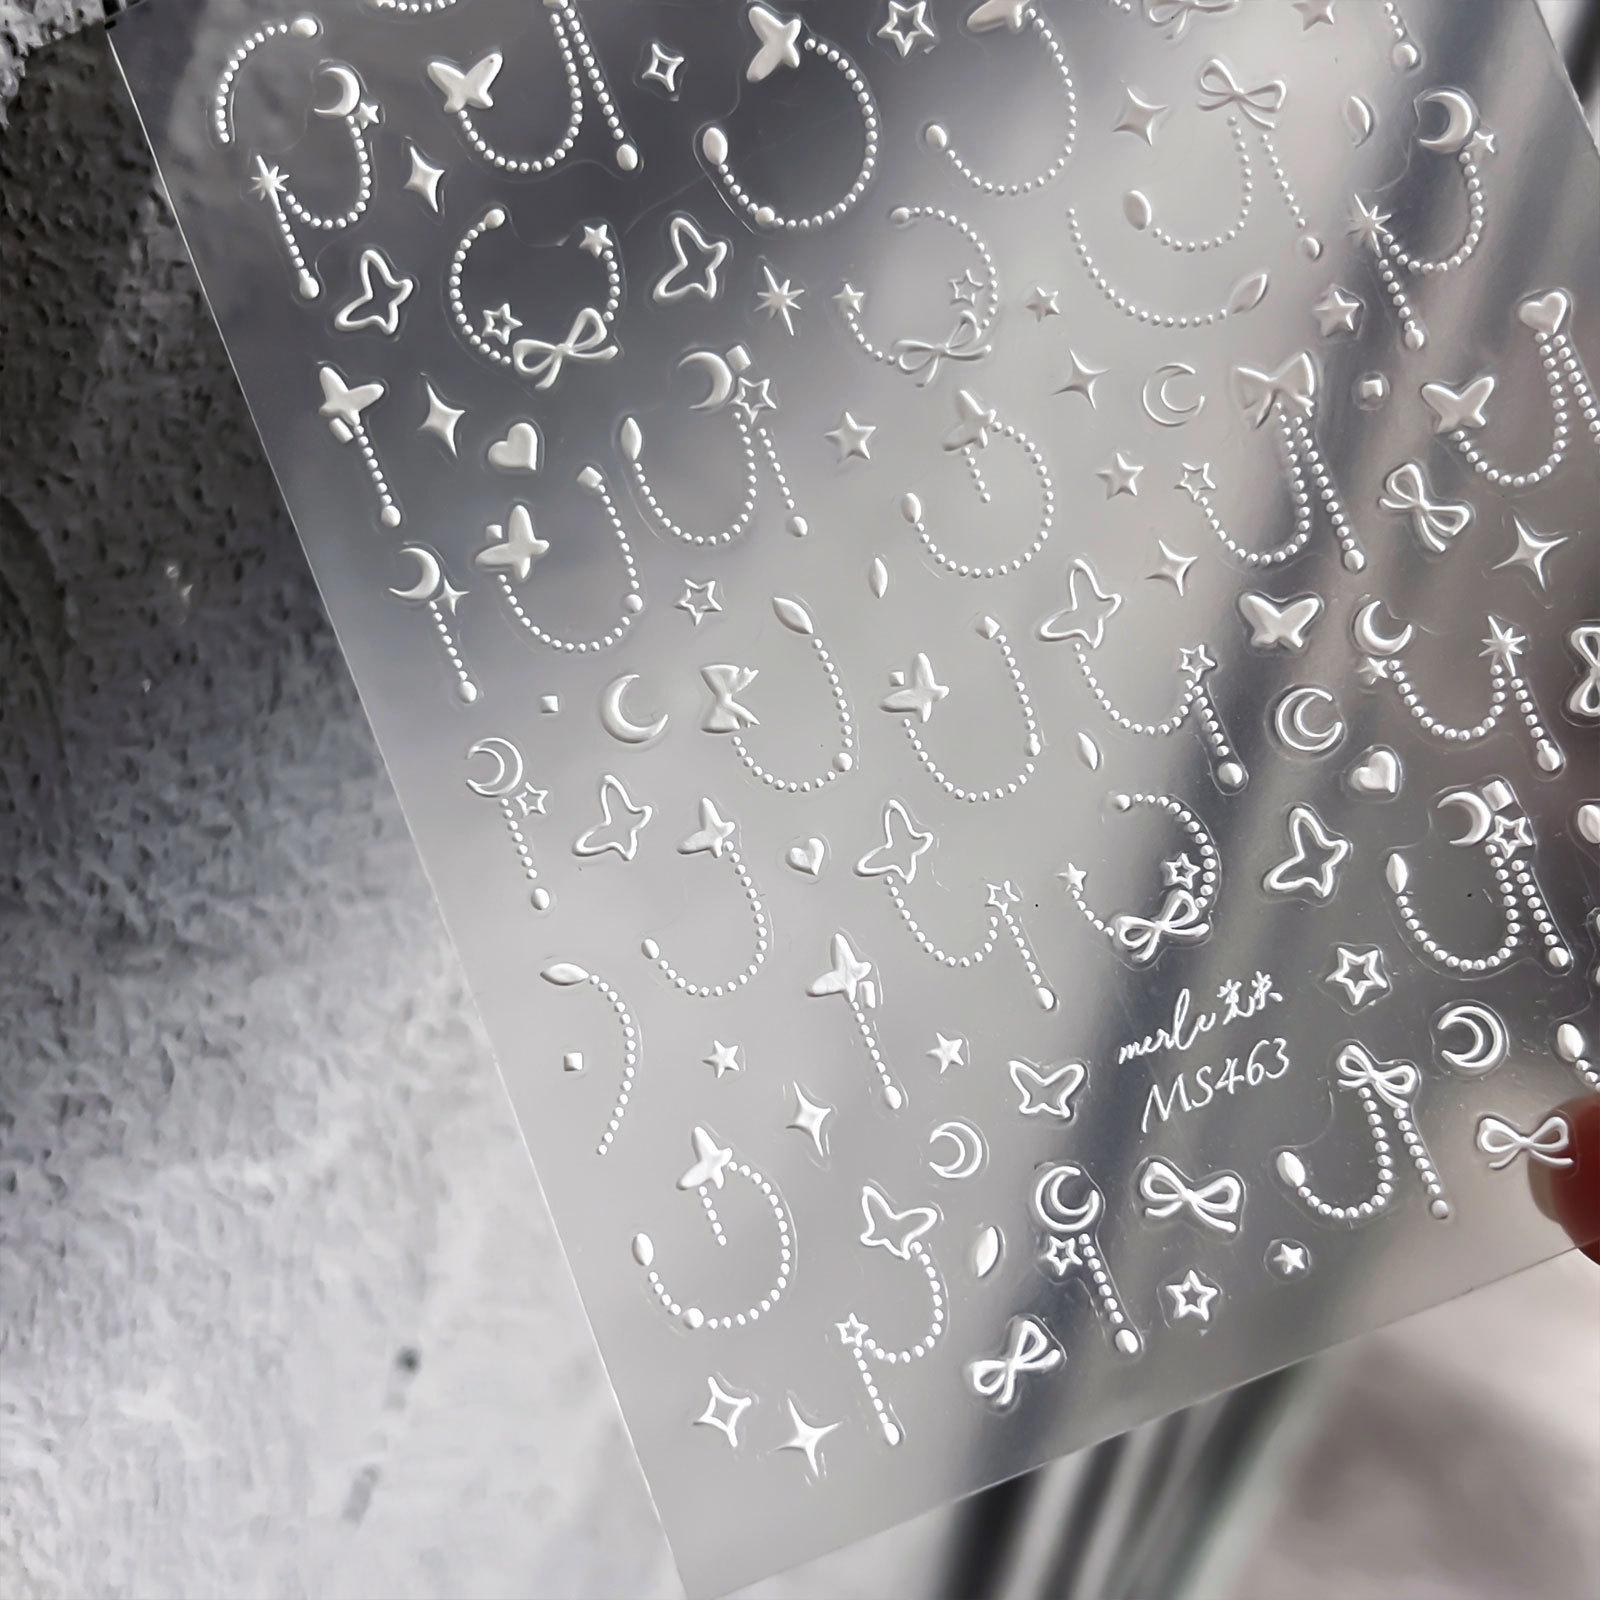 merle
MS463